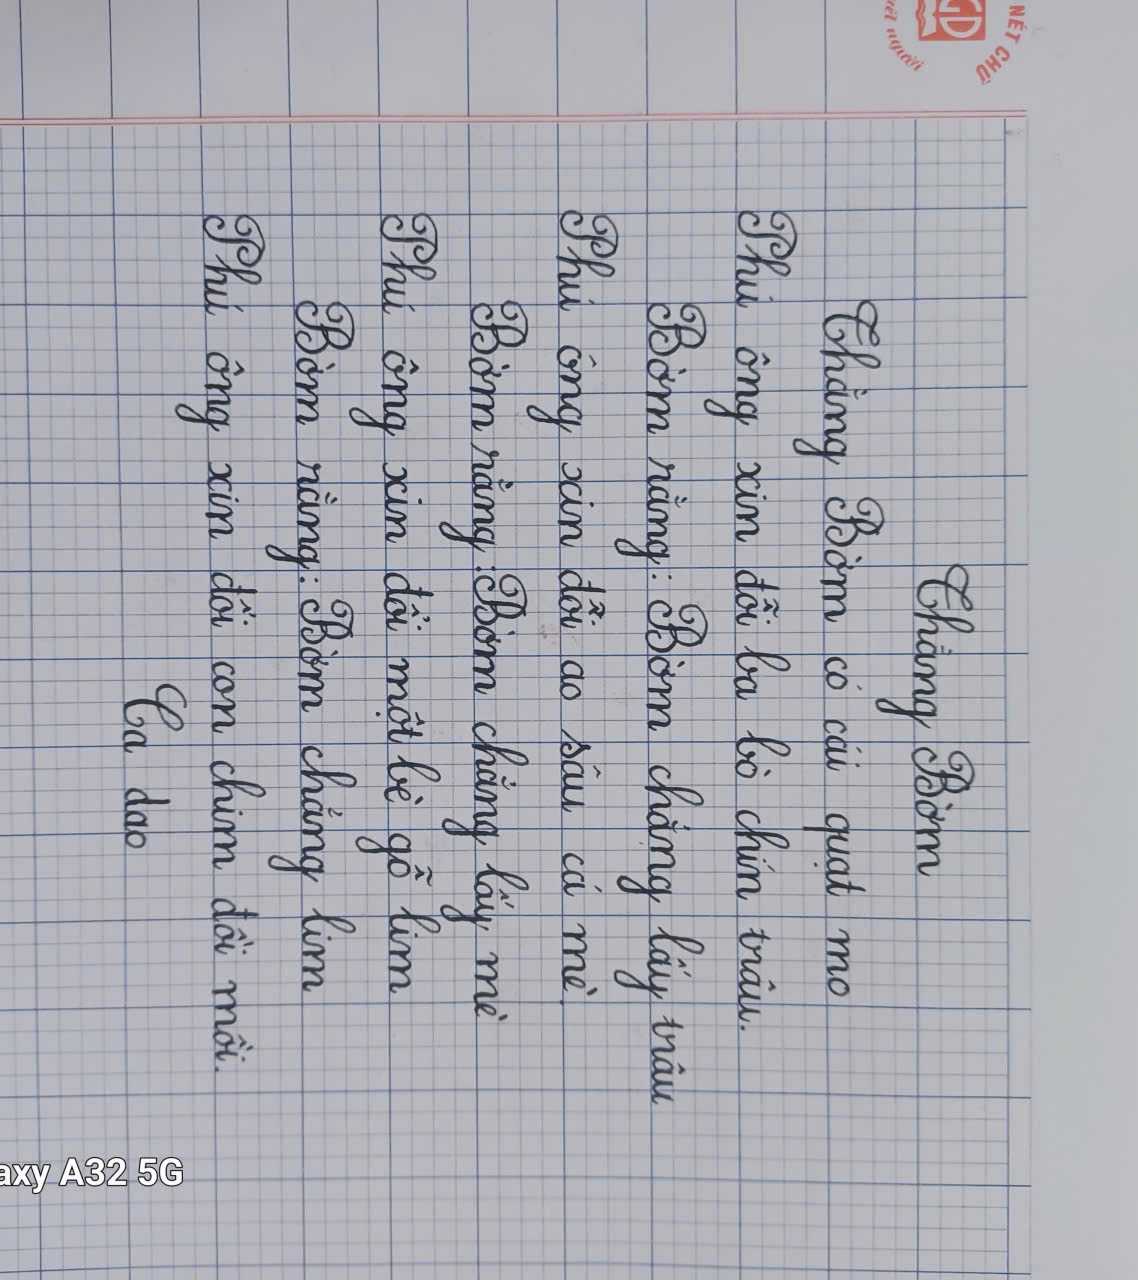 NÉT CHỮ
nết người
GD
Thằng Bờm
Thằng Bờm có cái quạt mo
Phú ông xin đổi ba bò chín trâu.
Bờm rằng: Bờm chẳng lấy trâu
Phú ông xin đổi ao sâu cá mè
Bờm rằng: Bờm chẳng lấy mè
Phú ông xin đổi một bè gỗ lim
Bờm rằng: Bờm chẳng lim
Phú ông xin đổi con chim đồi mồi.
Ca dao
axy A32 5G